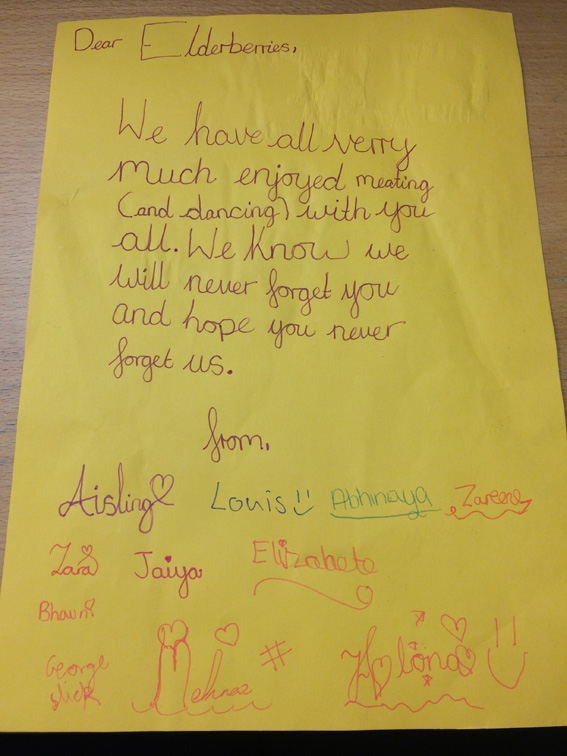 Dear Elderberries,
We have all verry
much enjoyed meating
(and dancing) with you
all. We know we
will never forget you
and hope you never
forget us.
from,
Aisling Louis Abhinaya Zareena
Zara Jaiya Elizabete
Bhavni
George
slick Mehnaz #